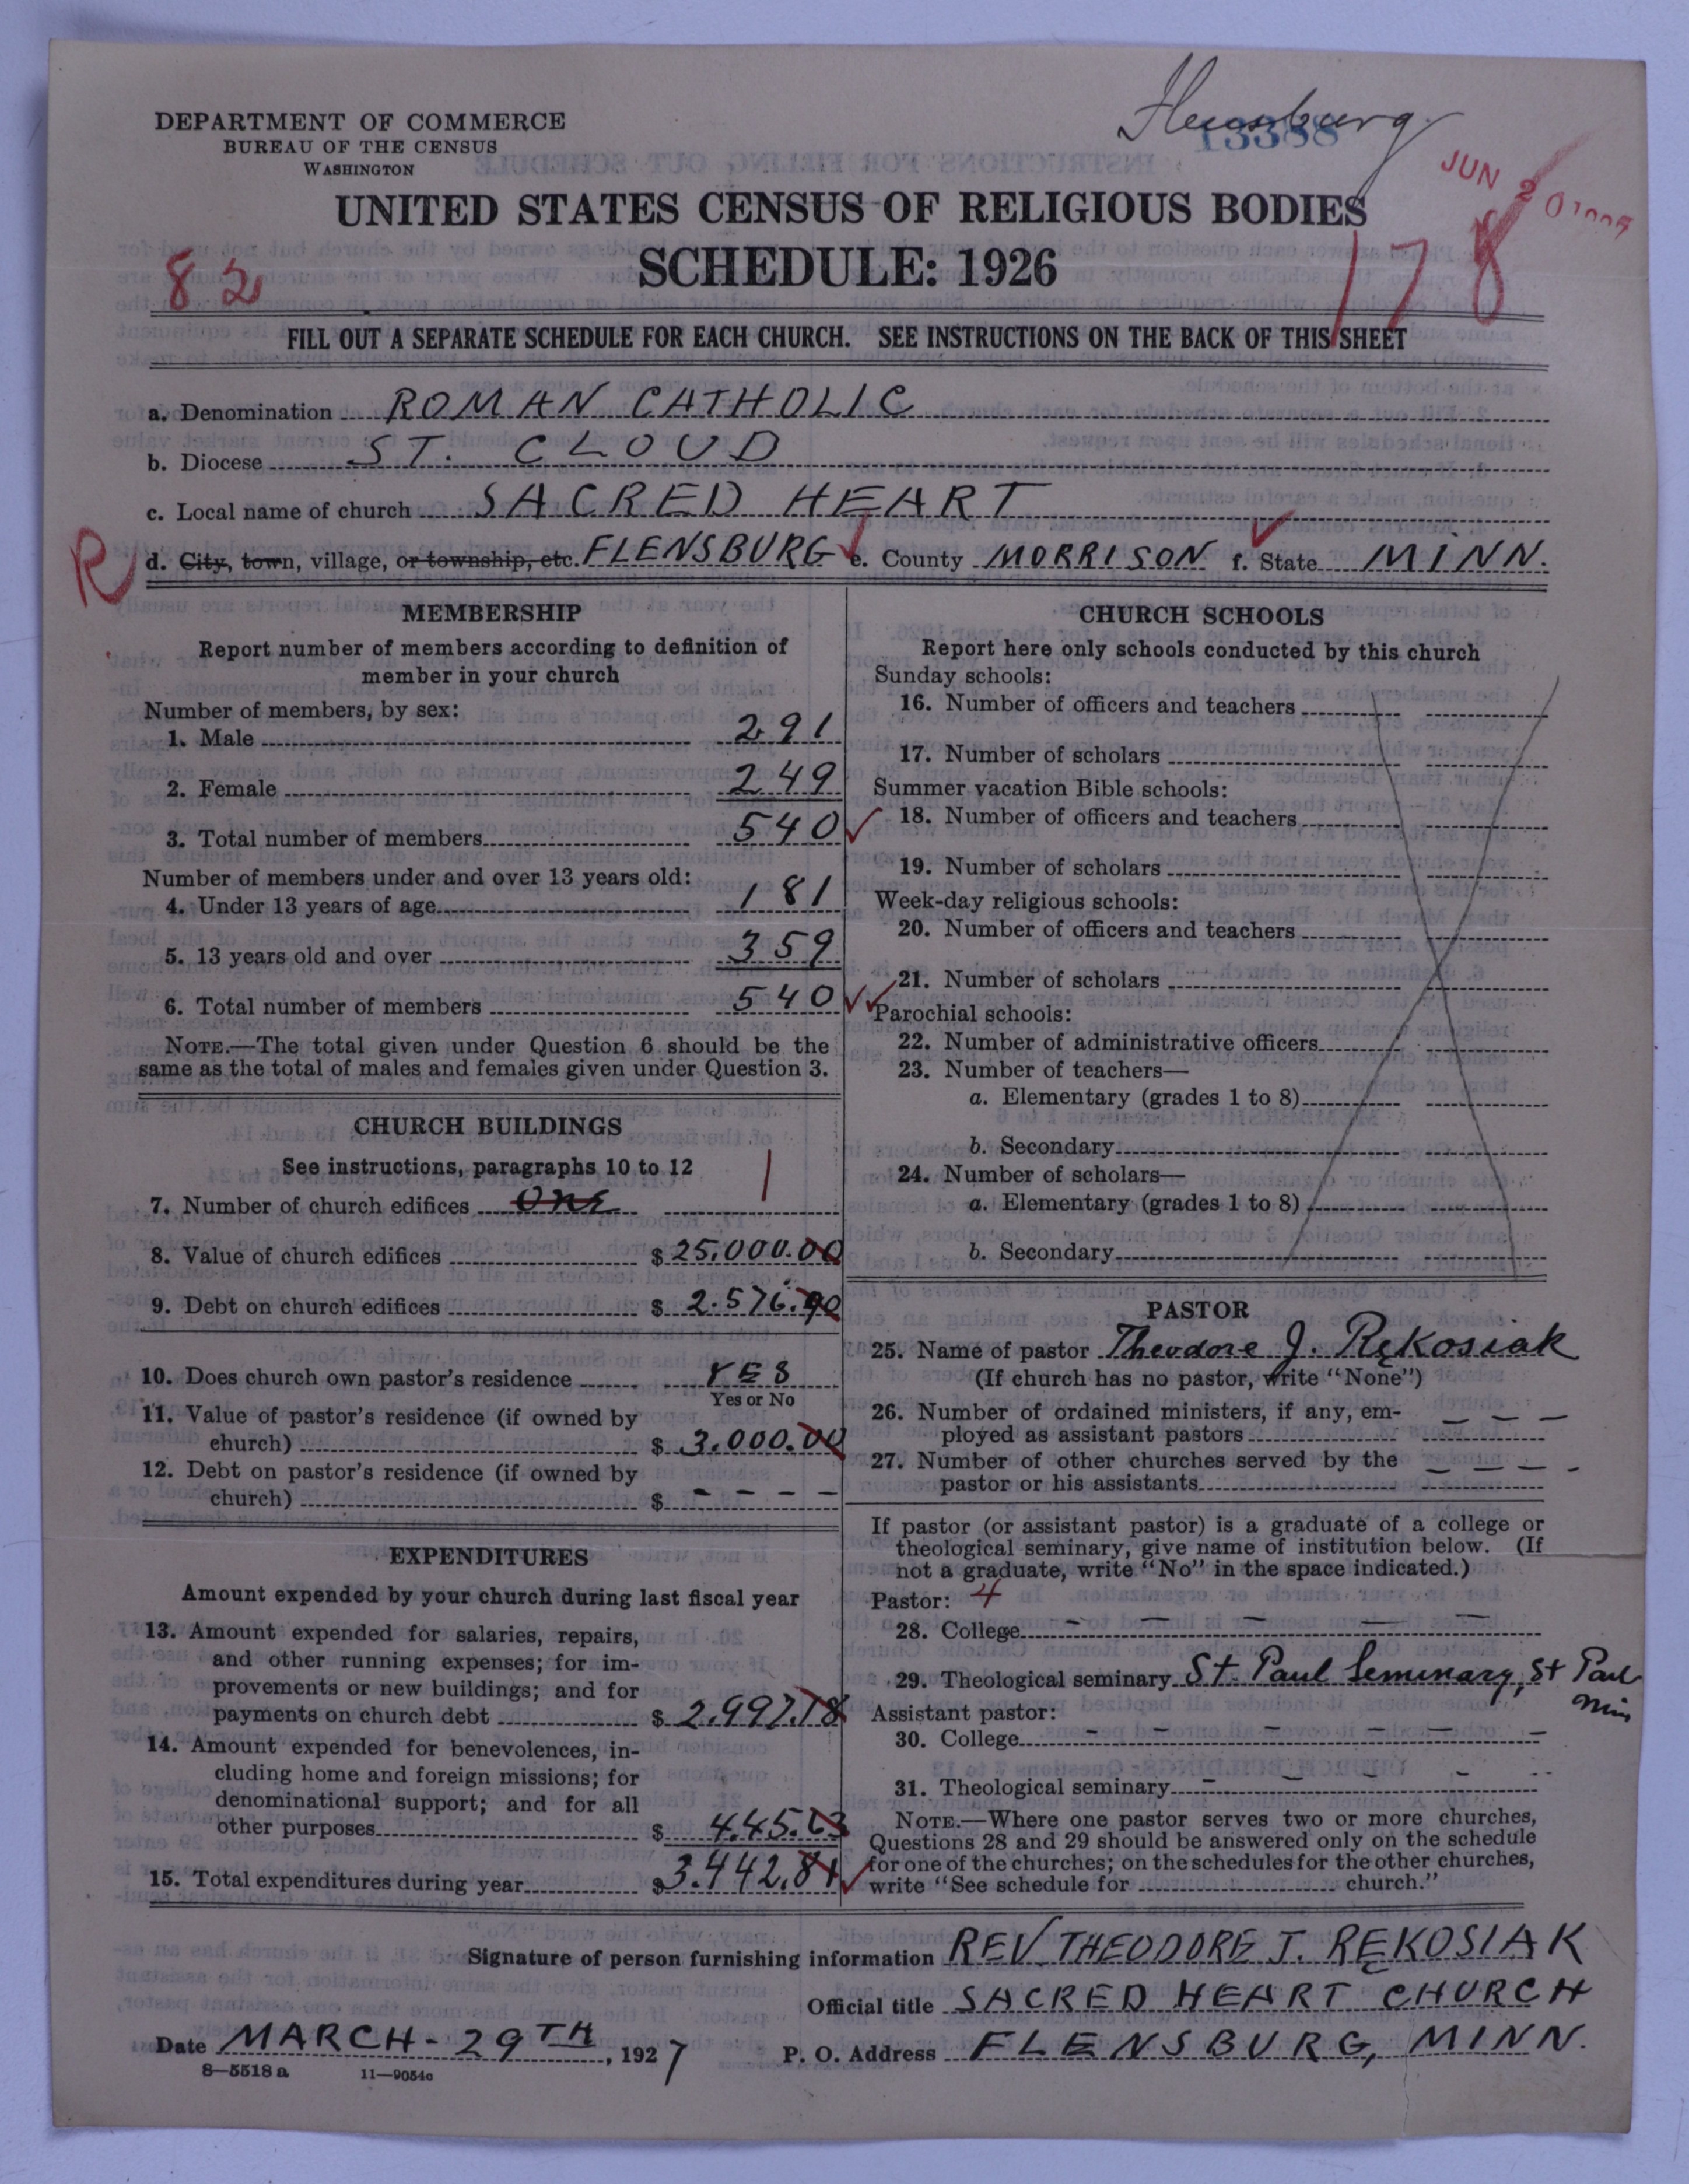 Flensburg
13388
DEPARTMENT OF COMMERCE
BUREAU OF THE CENSUS
WASHINGTON
JUN 2
UNITED STATES CENSUS OF RELIGIOUS BODIES
SCHEDULE: 1926
82
178
FILL OUT A SEPARATE SCHEDULE FOR EACH CHURCH. SEE INSTRUCTIONS ON THE BACK OF THIS SHEET
a. Denomination ROMAN CATHOLIC
b. Diocese ST. CLOUD
c. Local name of church SACRED HEART
R d. City, town, village, or township, etc. FLENSBURG e. County MORRISON f. State MINN.
MEMBERSHIP
Report number of members according to definition of
member in your church
Number of members, by sex:
1. Male 291
2. Female 249
3. Total number of members 540
Number of members under and over 13 years old:
4. Under 13 years of age 181
5. 13 years old and over 359
6. Total number of members 540
NOTE.—The total given under Question 6 should be the
same as the total of males and females given under Question 3.
CHURCH BUILDINGS
See instructions, paragraphs 10 to 12
7. Number of church edifices one 1
8. Value of church edifices $ 25.000.00
9. Debt on church edifices $ 2.576.90
10. Does church own pastor's residence YES
Yes or No
11. Value of pastor's residence (if owned by
church) $ 3.000.00
12. Debt on pastor's residence (if owned by
church) $ - - - -
EXPENDITURES
Amount expended by your church during last fiscal year
13. Amount expended for salaries, repairs,
and other running expenses; for im-
provements or new buildings; and for
payments on church debt $ 2.997.18
14. Amount expended for benevolences, in-
cluding home and foreign missions; for
denominational support; and for all
other purposes $ 445.63
15. Total expenditures during year $ 3.442.81
CHURCH SCHOOLS
Report here only schools conducted by this church
Sunday schools:
16. Number of officers and teachers
17. Number of scholars
Summer vacation Bible schools:
18. Number of officers and teachers
19. Number of scholars
Week-day religious schools:
20. Number of officers and teachers
21. Number of scholars
Parochial schools:
22. Number of administrative officers
23. Number of teachers—
a. Elementary (grades 1 to 8)
b. Secondary
24. Number of scholars—
a. Elementary (grades 1 to 8)
b. Secondary
PASTOR
25. Name of pastor Theodore J. Rękosiak
(If church has no pastor, write "None")
26. Number of ordained ministers, if any, em-
ployed as assistant pastors — — —
27. Number of other churches served by the
pastor or his assistants — — — -
If pastor (or assistant pastor) is a graduate of a college or
theological seminary, give name of institution below. (If
not a graduate, write "No" in the space indicated.)
Pastor: 4
28. College - — — — —
29. Theological seminary St. Paul Seminary, St Paul
Min
Assistant pastor:
30. College - - - - - -
31. Theological seminary - - - - -
NOTE.—Where one pastor serves two or more churches,
Questions 28 and 29 should be answered only on the schedule
for one of the churches; on the schedules for the other churches,
write "See schedule for church."
Signature of person furnishing information REV. THEODORE J. RĘKOSIAK
Official title SACRED HEART CHURCH
Date MARCH - 29TH, 1927 P. O. Address FLENSBURG, MINN.
8—5518 a 11—9054c